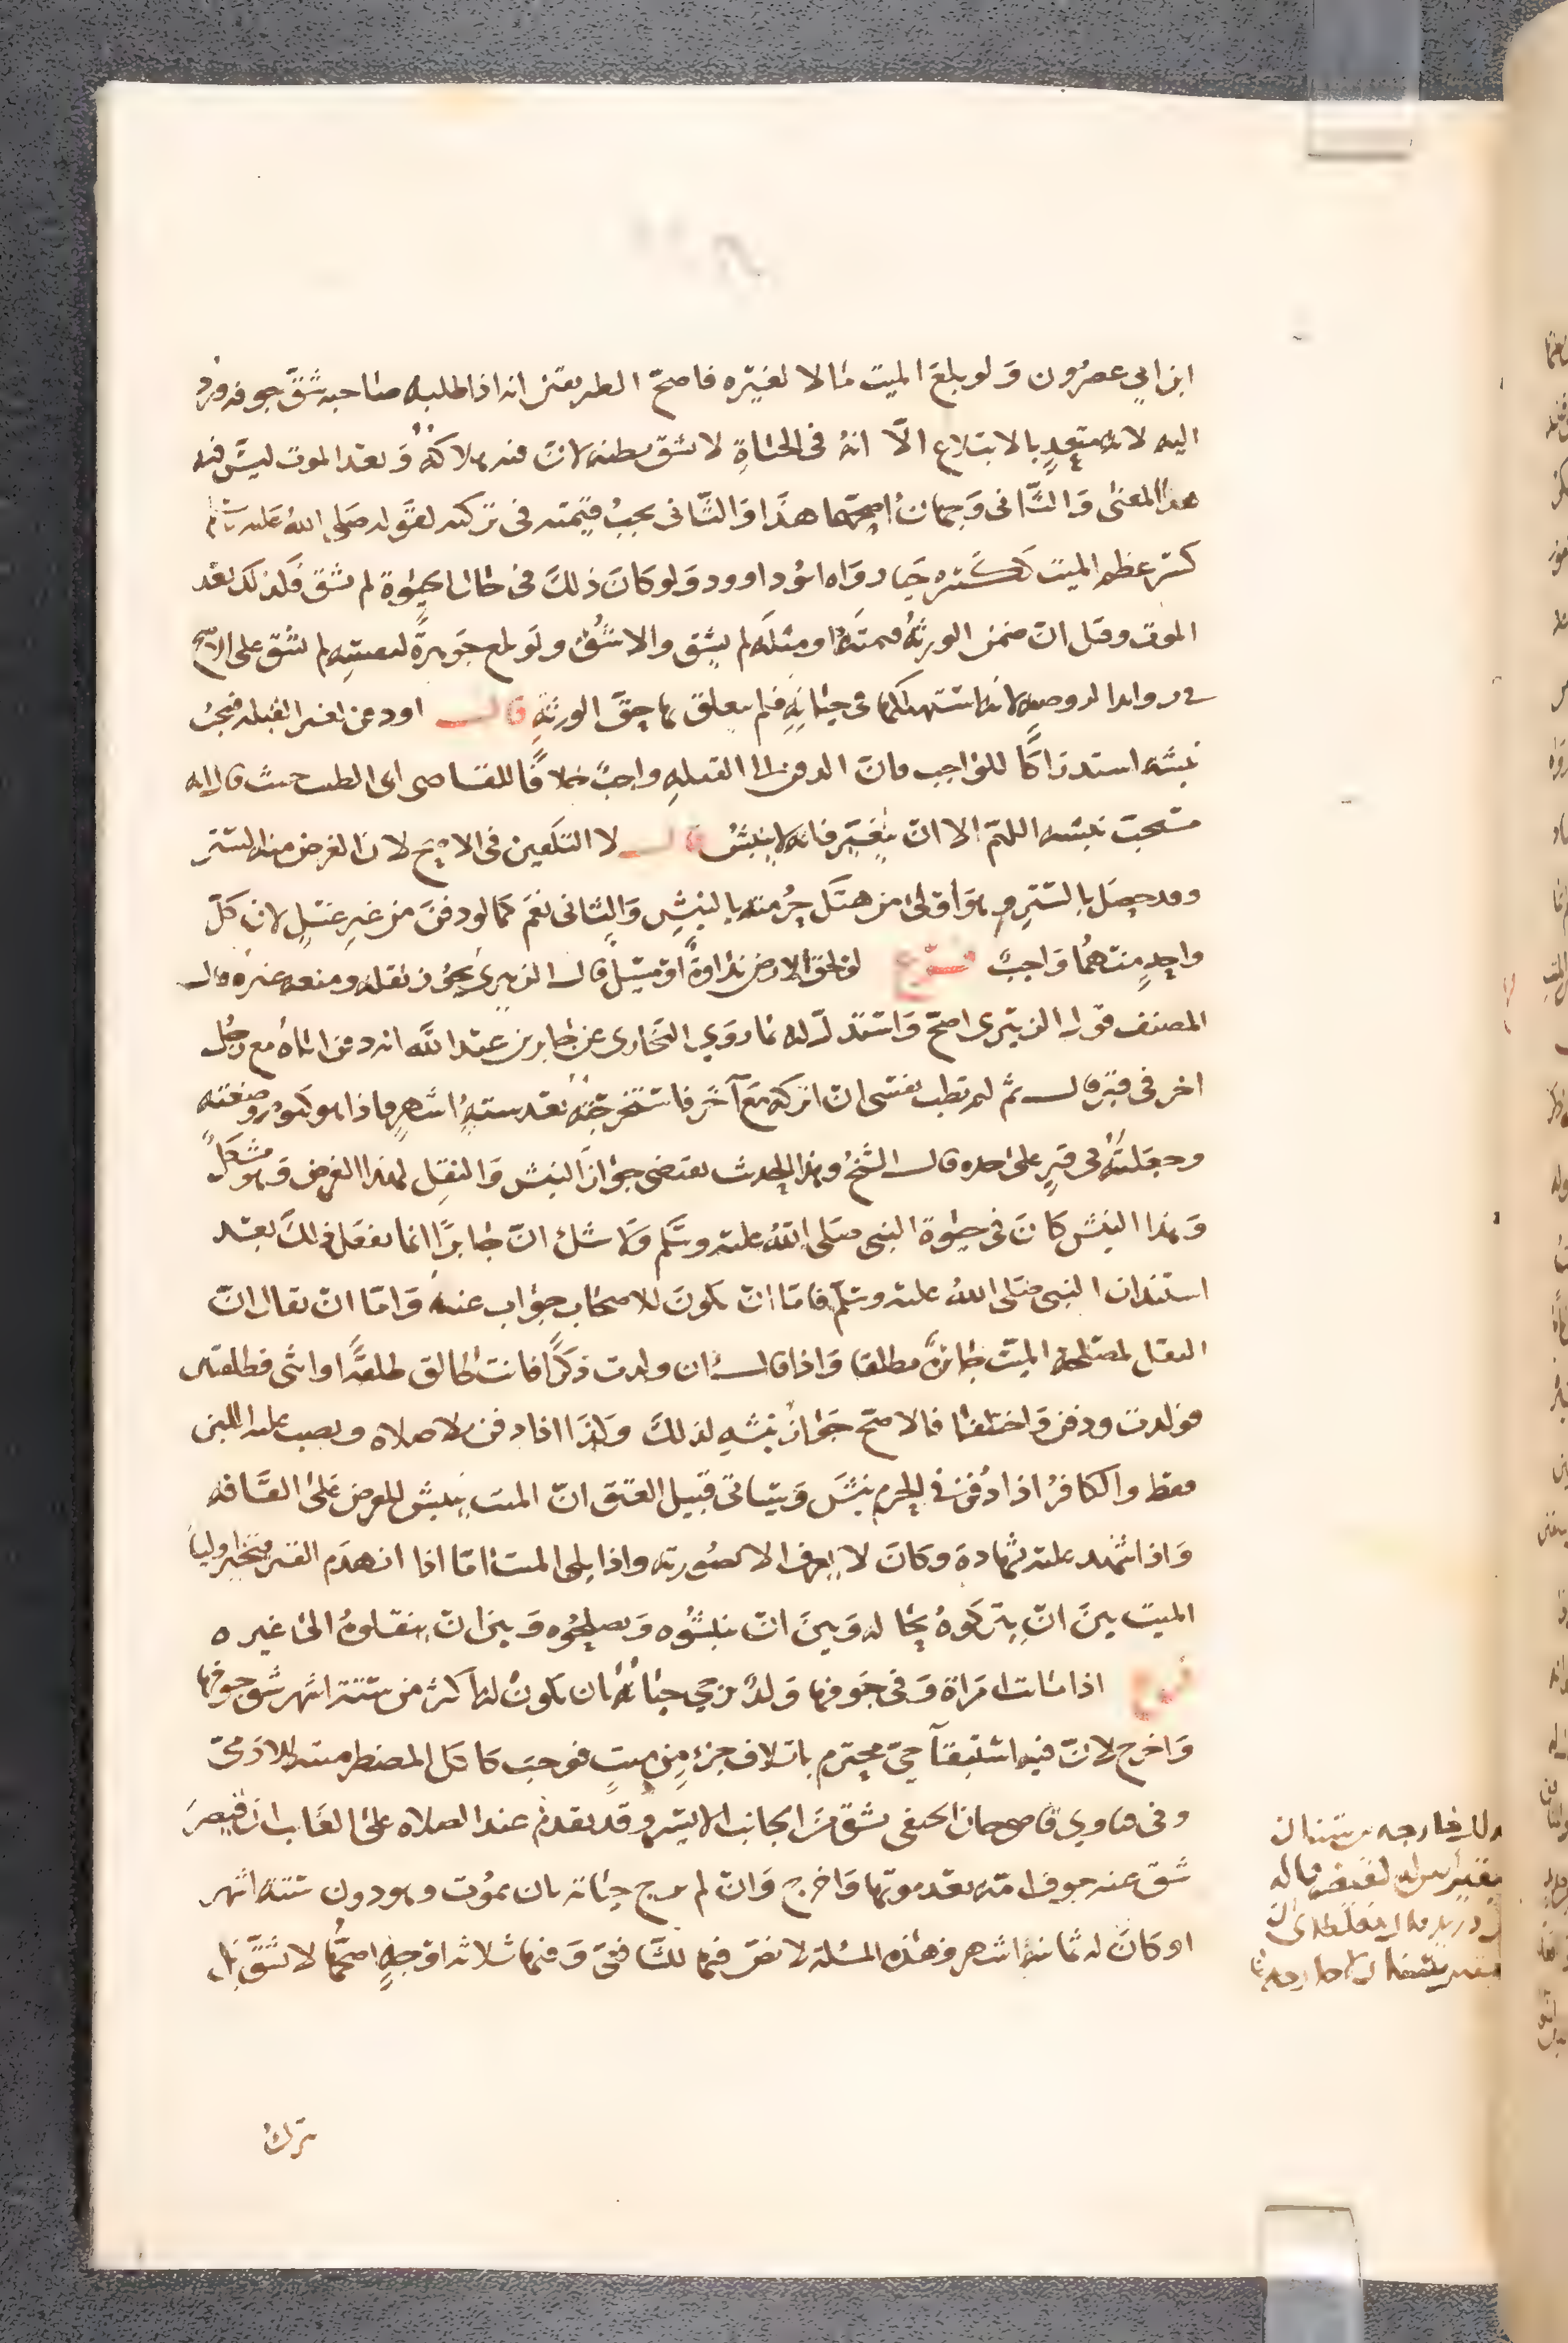 ابن ابي عصرون ولو بلع الميت مالا لغيره فاصح الطريقين انه اذا طلبه صاحبه شق جوفه ورد
اليه لانه متعد بالابتلاع الا انه في الحياة لا يشق بطنه لان فيه هلاكه وبعد الموت ليس فيه
هذا المعنى والثاني وجهان اصحهما هذا والثاني يجب قيمته في تركته لقوله صلى الله عليه
كسر عظم الميت ككسره حيا رواه ابو داوود ولو كان ذلك في حال الحيوة لم يشق فكذلك بعد
الموت وقيل ان ضمن الورثة قيمته او مثله لم يشق والا شق ولو بلع جوهرة لنفسه لم يشق على الاصح
في زوايد الروضه لانه استهلكها في حياته فلم يتعلق بها حق الورثة قال او دفن لغير القبله فيجب
نبشه استدراكا للواجب فان الدفن الى القبله واجب خلافا للقاضي ابي الطيب حيث قال انه
مستحب نبشه اللهم الا ان يتغير فانه لا ينبش قال لا التكفين في الاصح لان الغرض منه الستر
وقد حصل بالستر وهو اولى من هتك حرمته بالنبش والثاني نعم كما لو دفن من غير غسل لان كل
واحد منهما واجب فرع لو لحق الارض نداوة او سيل قال الزبيري يجوز نقله ومنعه غيره قال
المصنف قول الزبيري اصح واستدل له بما روي البخاري عن جابر بن عبد الله انه دفن اباه مع رجل
اخر في قبر قال ثم لم تطب نفسي ان اتركه مع آخر فاستخرجته بعد ستة اشهر فاذا هو كيوم وضعته
وجعلته في قبر على حده قال الشيخ وهذا الحديث يقتضي جواز النبش والنقل لهذا الغرض وهو مشكل
وهذا النبش كان في حيوة النبي صلى الله عليه وسلم ولا شك ان جابرا انما يفعل ذلك بعد
استئذان النبي صلى الله عليه وسلم فاما ان يكون للاصحاب جواب عنه واما ان يقال ان
النقل لمصلحة الميت جائزة مطلقا واذا قال ان ولدت ذكرا فانت طالق طلقة او انثى فطلقتين
فولدت ودفن واختلفا فالاصح جواز نبشه لذلك وكذا اذا دفن بلا صلاه ونصب عليه اللبن
فقط والكافر اذا دفن في الحرم نبش وسياتي قبيل العتق ان الميت ينبش للعرض على القافه
واذا شهد عليه شهادة وكان لا يعرف الا بصورته واذا بلي الميت اما اذا انهدم القبر فتخير اوليا
الميت بين ان يتركوه بحاله وبين ان ينبشوه ويصلحوه وبين ان ينقلوه الى غيره
فرع اذا ماتت امراة وفي جوفها ولد يرجي حياته بان يكون له اكثر من ستة اشهر شق جوفها
واخرج لان فيه استبقآ حي محترم باتلاف جزء من ميت فوجب كاكل المضطر ميتة الادمي
وفي فتاوي قاضي خان الحنفي يشق من الجانب الايسر وقد تقدم عند الصلاه على الغايب ان قيصر
شق عنه جوف امه بعد موتها واخرج وان لم يرج حياته بان يموت وهو دون ستة اشهر
او كان له ثمانية اشهر وهذه المسئلة لا نص فيها للشافعي وفيها ثلاثة اوجه اصحها لا تشق بل
ترك